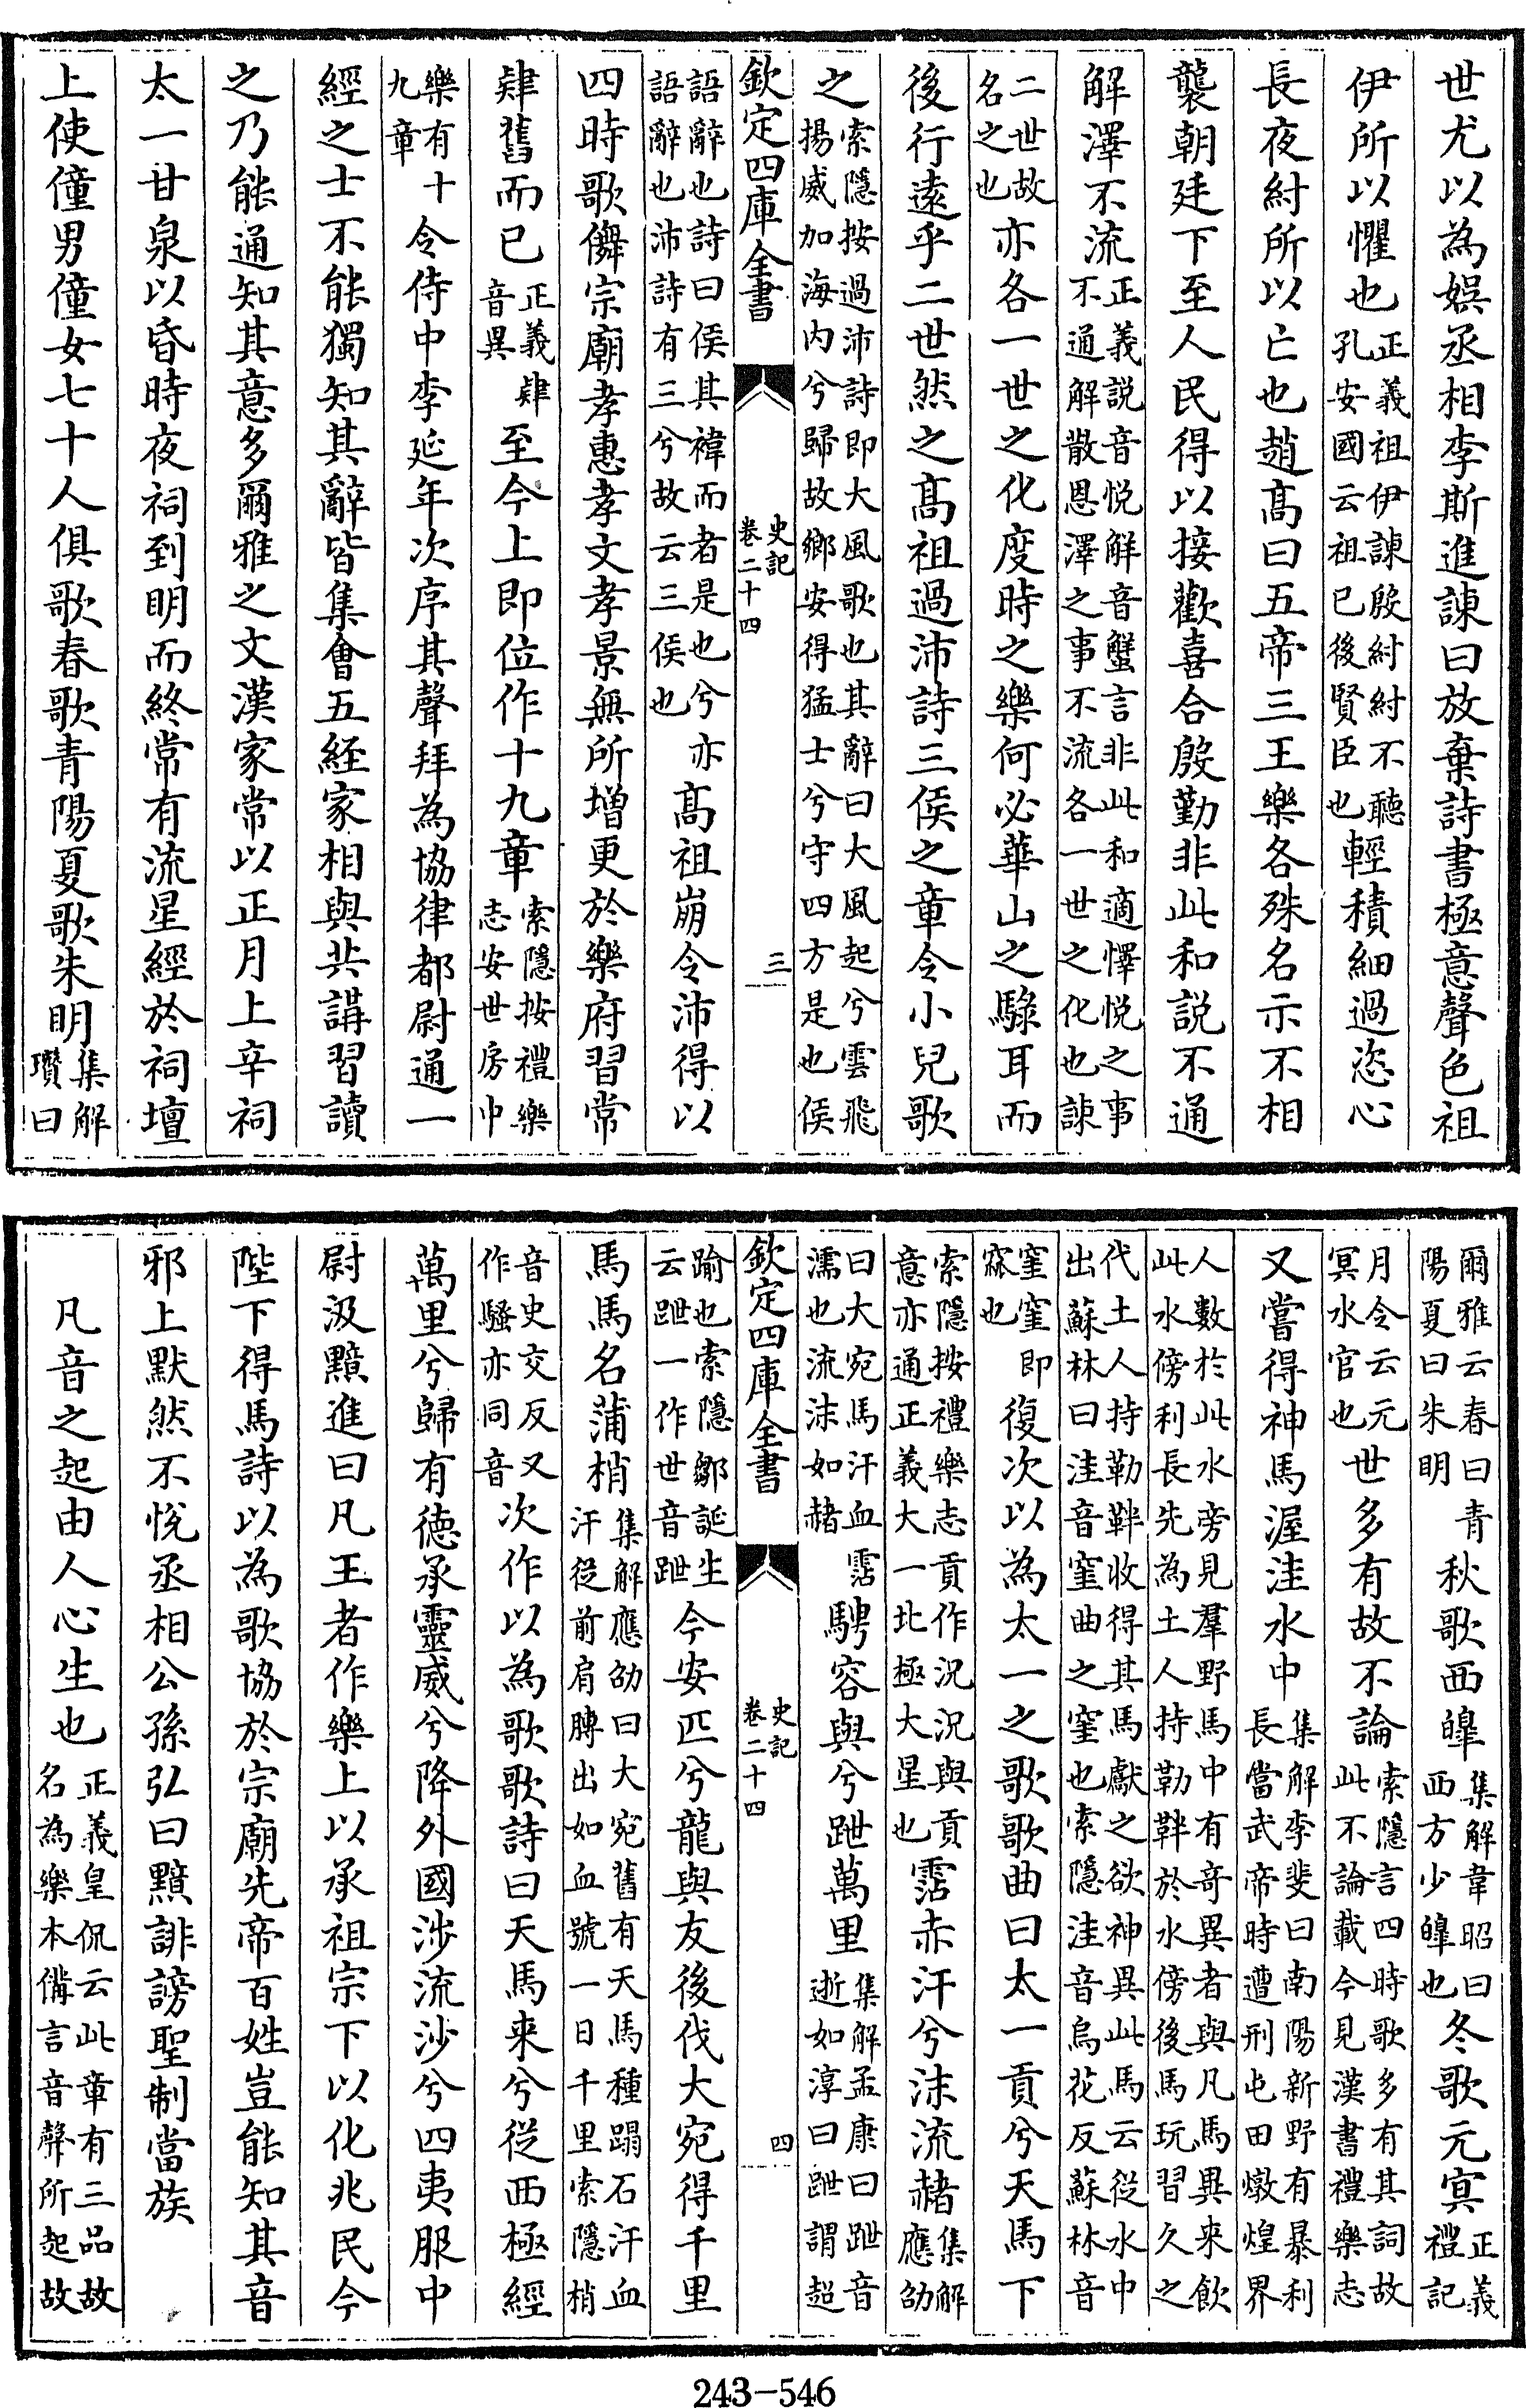 世尤以為娯丞相李斯進諫曰放棄詩書極意聲色祖
伊所以懼也正義祖伊諫殷紂紂不聽孔安國云祖已後賢臣也輕積細過恣心
長夜紂所以亡也趙髙曰五帝三王樂各殊名示不相
襲朝廷下至人民得以接歡喜合殷勤非此和説不通
解澤不流正義説音悦解音蟹言非此和適懌悦之事不通解散恩澤之事不流各一世之化也諫
二世故名之也亦各一世之化度時之樂何必華山之騄耳而
後行遠乎二世然之髙祖過沛詩三侯之章令小兒歌
之索隱按過沛詩即大風歌也其辭曰大風起兮雲飛揚威加海内兮歸故鄉安得猛士兮守四方是也侯
欽定四庫全書 史記卷二十四 三
語辭也詩曰侯其禕而者是也兮亦語辭也沛詩有三兮故云三侯也髙祖崩令沛得以
四時歌儛宗廟孝惠孝文孝景無所增更於樂府習常
肄舊而已正義肄音異至今上即位作十九章索隱按禮樂志安世房中
樂有十九章令侍中李延年次序其聲拜為協律都尉通一
經之士不能獨知其辭皆集會五經家相與共講習讀
之乃能通知其意多爾雅之文漢家常以正月上辛祠
太一甘泉以昏時夜祠到明而終常有流星經於祠壇
上使僮男僮女七十人俱歌春歌青陽夏歌朱明集解瓚曰
爾雅云春曰青陽夏曰朱明秋歌西皥集解韋昭曰西方少皥也冬歌元冥正義禮記
月令云元冥水官也世多有故不論索隱言四時歌多有其詞故此不論載今見漢書禮樂志
又嘗得神馬渥洼水中集解李斐曰南陽新野有暴利長當武帝時遭刑屯田燉煌界
人數於此水旁見羣野馬中有奇異者與凡馬異来飲此水傍利長先為土人持勒靽於水傍後馬玩習久之
代土人持勒靽收得其馬獻之欲神異此馬云從水中出蘇林曰洼音窐曲之窐也索隱洼音烏花反蘇林音
窐窐即窊也復次以為太一之歌歌曲曰太一貢兮天馬下
索隱按禮樂志貢作況況與貢意亦通正義大一北極大星也霑赤汗兮沬流赭集解應劭
曰大宛馬汗血霑濡也流沬如赭騁容與兮跇萬里集解孟康曰跇音逝如淳曰跇謂超
欽定四庫全書 史記卷二十四 四
踰也索隱鄒誕生云跇一作世音跇今安匹兮龍與友後伐大宛得千里
馬馬名蒲梢集解應劭曰大宛舊有天馬種蹋石汗血汗從前肩膊出如血號一日千里索隱梢
音史交反又作騷亦同音次作以為歌歌詩曰天馬来兮從西極經
萬里兮歸有德承靈威兮降外國涉流沙兮四夷服中
尉汲黯進曰凡王者作樂上以承祖宗下以化兆民今
陛下得馬詩以為歌協於宗廟先帝百姓豈能知其音
邪上默然不悦丞相公孫弘曰黯誹謗聖制當族
凡音之起由人心生也正義皇侃云此章有三品故名為樂本備言音聲所起故
243-546